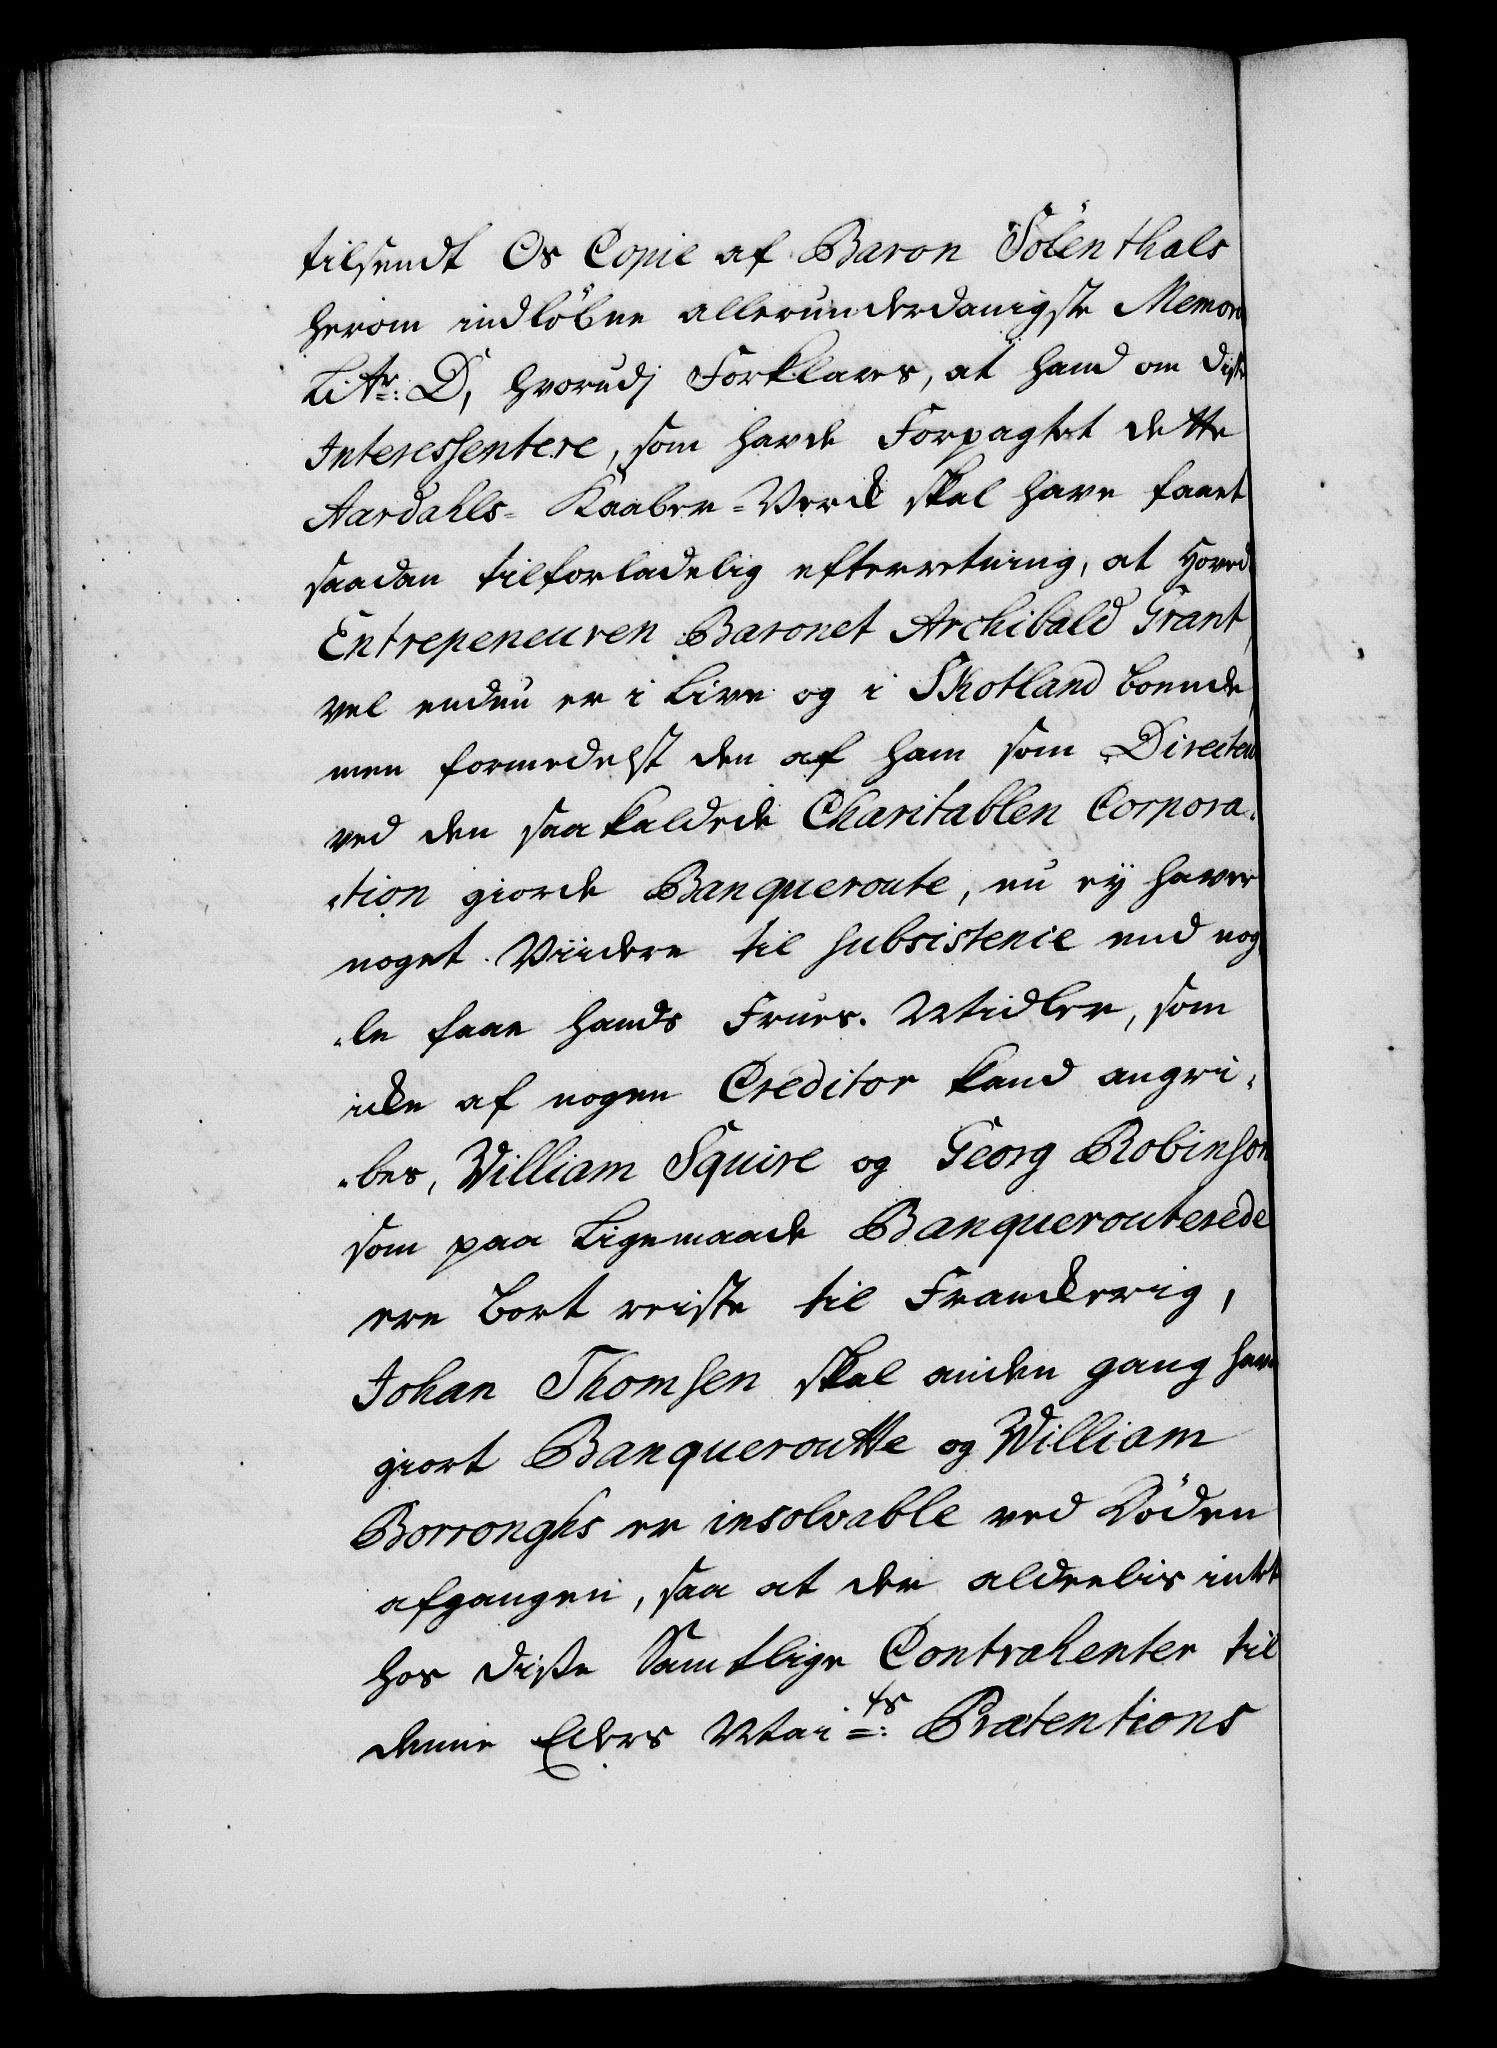 tilsendt Os Copie af Baron Sölenthals
herom indløbne allerunderdanigste Memori
Litr: D, hvorudj Forklares, at hand om disse
Interessentere, som havde Forpagtet dette
Aardahls-Kaaber-Verck skal have faaet
saadan tilforladelig efterretning, at Hoved
Entrepeneuren Baronet Archibald Grant,
vel endnu er i Live og i Skotland boende,
men formedelst den af ham som Directeur
ved den saa kaldede Charitablen Corpora-
-tion giorde Banqueroute, nu ey haver
noget Viidere til Subsistence end nog-
-le faae hands Frues Midler, som
icke af nogen Creditor kand angri-
-bes, William Squire og Georg Robinson
som paa Ligemaade Banquerouterede
ere bort reiste til Franckerrig,
Johan Thomsen skal anden gang have
giort Banqueroutte og William
Borronghs er insolvable ved Döden
afgangen, saa at der aldeelis intet
hos disse Samtlige Contrahenter til
denne Eders Maits: Prætentions